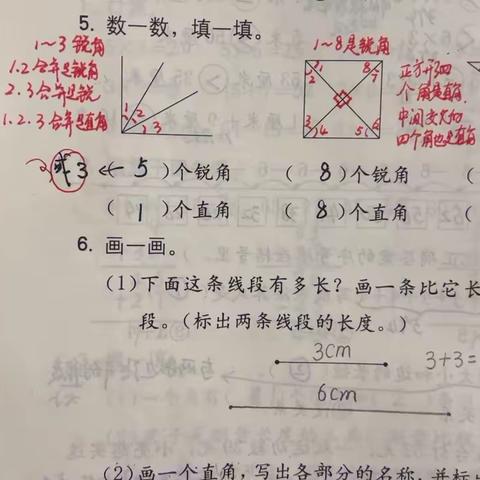 5. 数一数，填一填。
1~3 锐角
1.2合并是锐角
2.3合并是锐
1.2.3合并是直角
1 2 3
1~8是锐角
1 2 3 4 5 6 7 8
正方形四
个角是直角.
中间交叉的
四个角也是直角
或3 ← 5 )个锐角 ( 8 )个锐角 (
( 1 )个直角 ( 8 )个直角 (
6. 画一画。
(1)下面这条线段有多长？画一条比它长
段。(标出两条线段的长度。)
3cm
3+3=
6cm
(2)画一个直角，写出各部分的名称，并标出